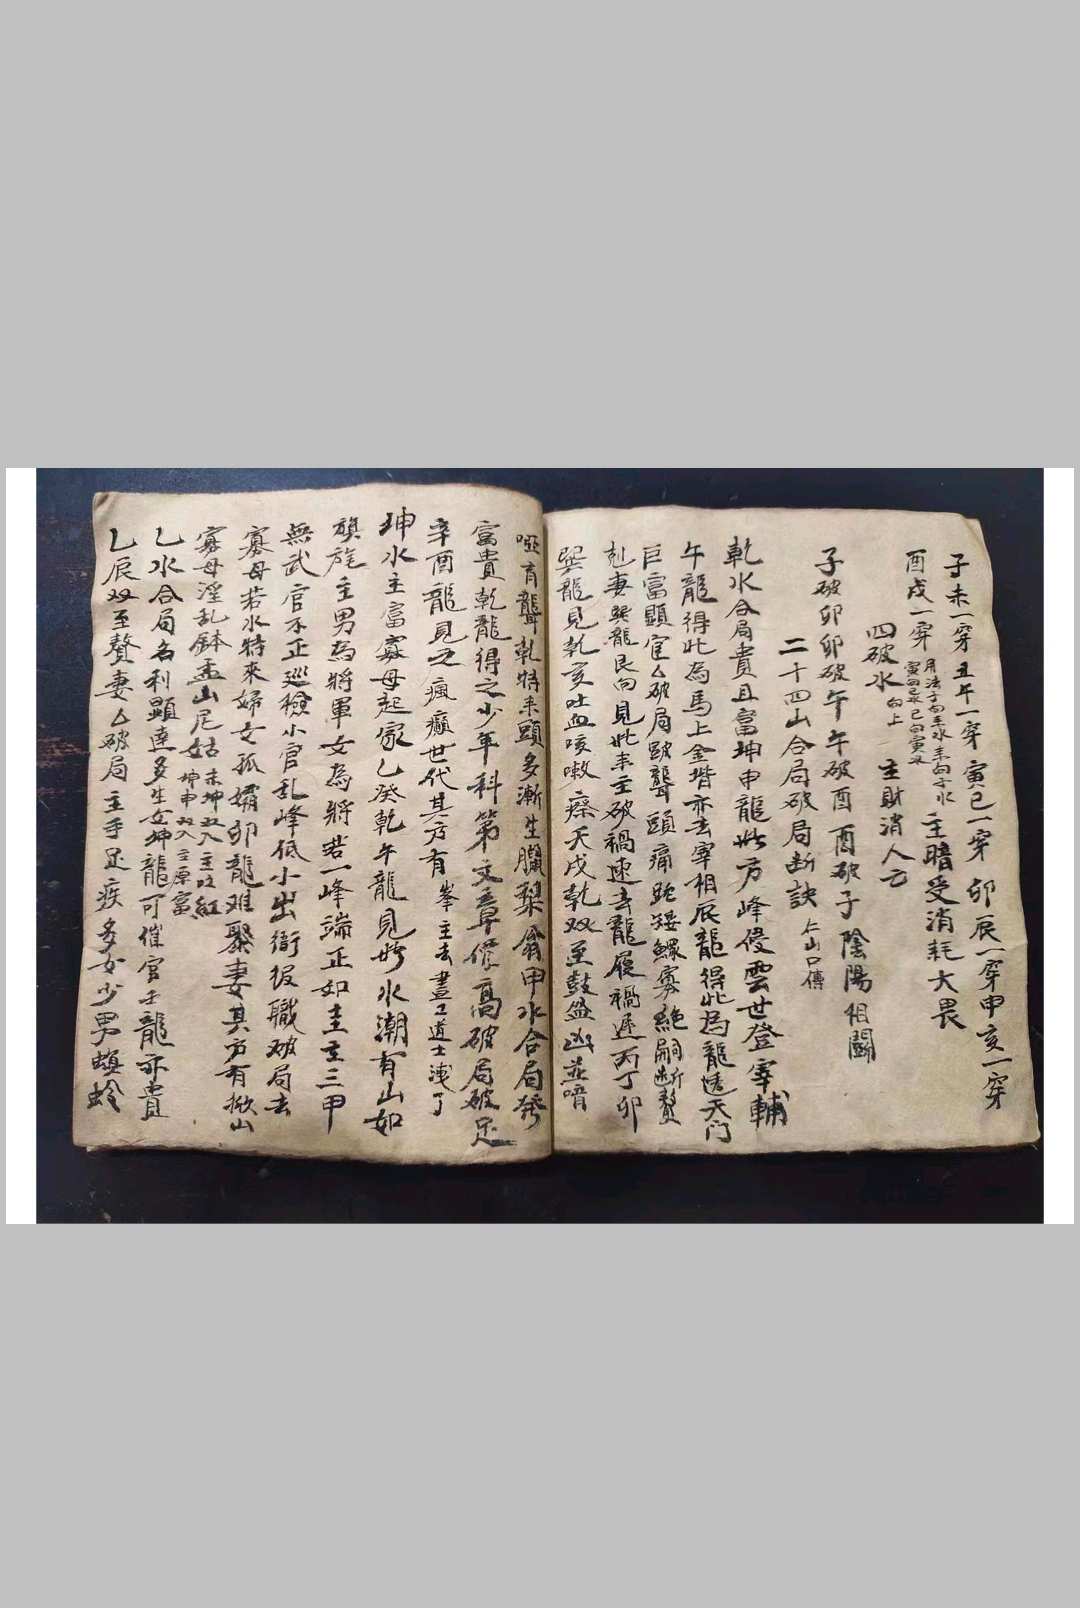 子未一穿 丑午一穿 寅巳一穿 卯辰一穿 申亥一穿
酉戌一穿 用法子向未水 未向子水 寅向巳水 巳向寅水 主暗受消耗大畏
四破水 向上 主財消人亡
子破卯 卯破午 午破酉 酉破子 陰陽相關
二十四山合局破局断訣 仁山口傳
乾水合局貴且富坤申龍此方峰侵雲世登宰輔
午龍得此為馬上金堦亦去宰相辰龍得此為龍透天门
巨富顯宦么破局跛聾頭痛跎矮鰥寡絶嗣断贅
尅妻巽龍艮向見此来主破禍速去龍屐禍遲丙丁卯
巽龍見乾亥吐血咳嗽瘵天戌乾双至鼓盆凶並喑
啞肓聾乾特来頭多漸生臘梨翁甲水合局發
富貴乾龍得之少年科第文章修高破局破足
辛酉龍見之瘋癲世代其方有峯主去畫工道士洩丁
坤水主富寡母起家乙癸乾午龍見此水潮有山如
旗旄主男為將軍女為將若一峰端正如圭主三甲
無武官不正巡檢小官乱峰低小出衙役職破局去
寡母若水特來婦女孤孀卯龍难聚妻其方有掀山
寡母淫乱鉢盂山尼姑 未坤双入主吐紅 坤申双入主票富
乙水合局名利顯達多生女坤龍可催官壬龍亦貴
乙辰双至贅妻么破局主手足疾多女少男螟蛉